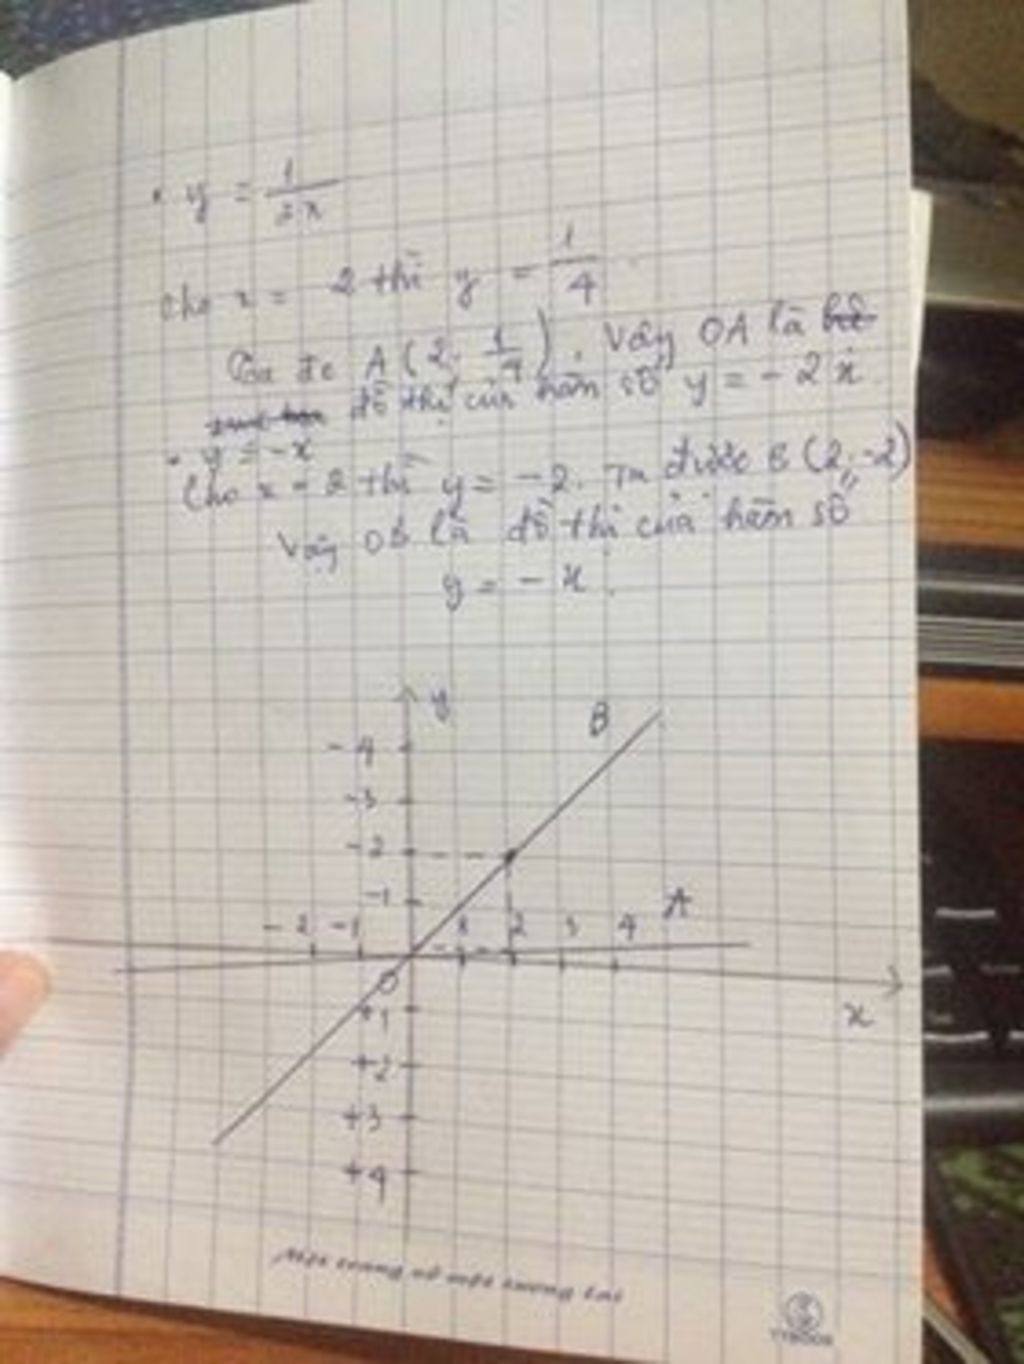 • y = 1/2x
Cho x = 2 thì y = 1/4.
Tọa độ A (2; 1/4). Vậy OA là
đồ thị của hàm số y = - 2x.
• y = -x
Cho x = 2 thì y = -2. Ta được B (2; -2)
Vậy OB là đồ thị của hàm số
y = - x.
y
B
-4
-3
-2
-1
A
-2 -1 1 2 3 4
O
x
+1
+2
+3
+4